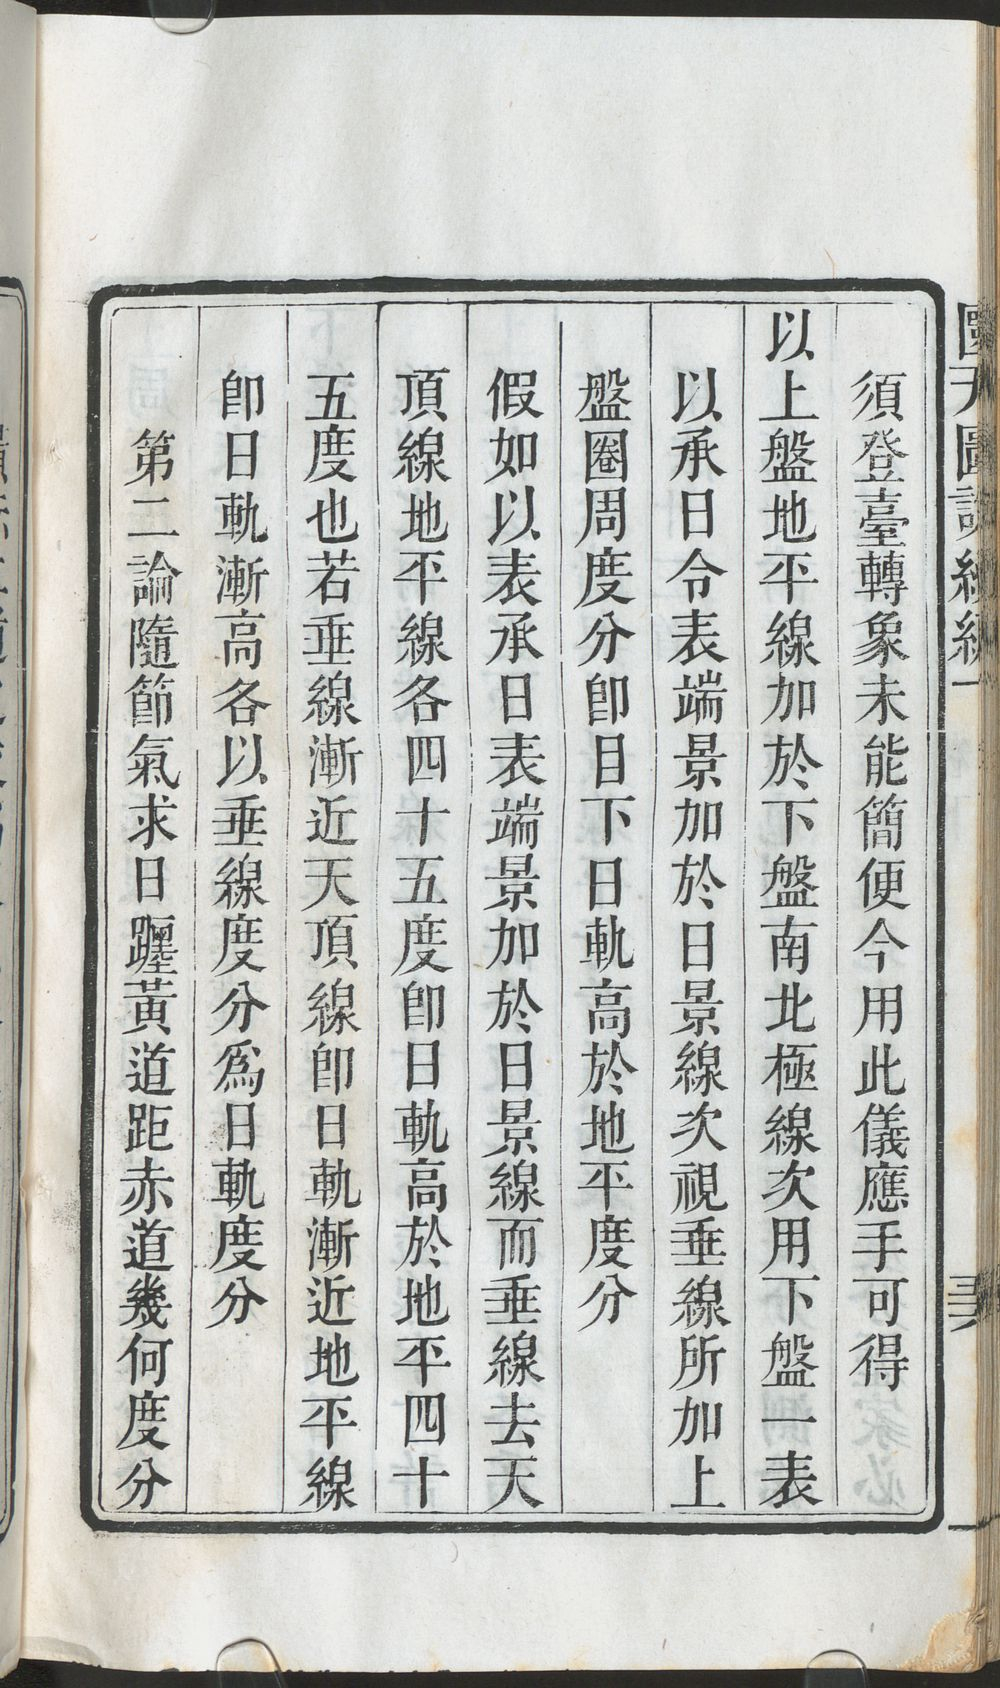 須登臺轉象未能簡便今用此儀應手可得
以上盤地平線加於下盤南北極線次用下盤一表
以承日令表端景加於日景線次視垂線所加上
盤圈周度分卽目下日軌高於地平度分
假如以表承日表端景加於日景線而垂線去天
頂線地平線各四十五度卽日軌高於地平四十
五度也若垂線漸近天頂線卽日軌漸近地平線
卽日軌漸高各以垂線度分爲日軌度分
第二論隨節氣求日躔黃道距赤道幾何度分